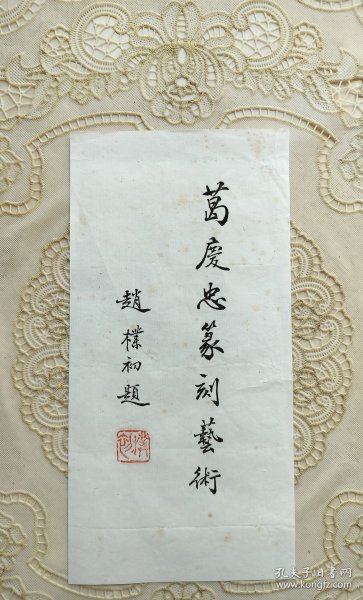 葛慶忠篆刻藝術
趙樸初題
孔夫子旧书网
www.kongfz.com